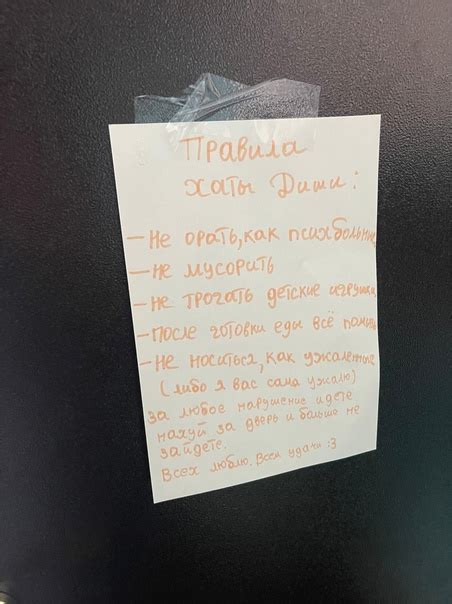 Правила
хаты Диши:
-Не орать, как психбольные
-Не мусорить
-Не трогать детские игрушки
-После готовки еды всё помыть
-Не носиться, как ужаленные
(либо я вас сама ужалю)
за любое нарушение идете
нахуй за дверь и больше не
зайдете.
Всех люблю. Всем удачи :3